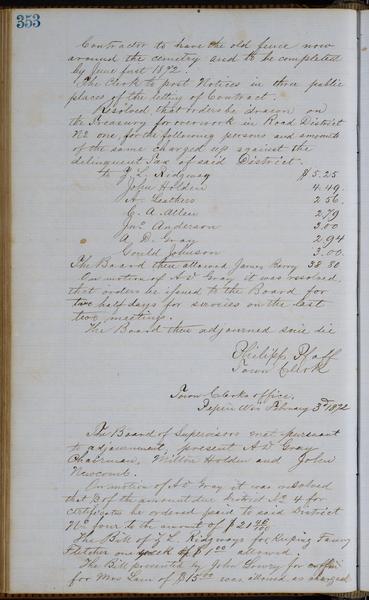 353
Contractor to have the old fence now
around the cemetry and to be completed
by June first 1872.
The Clerk to post Notices in three public
places of the letting of Contract.
Resolved, that orders be drawn on
the Treasury for overwork in Road District
No one, for the following persons and amounts
of the same charged up against the
delinquent Tax of said District.
to Z. L. Ridgway $5.25
John Holden 4.49
A. Leathers 2.56
C. A. Allen 2.79
Jno Anderson 3.00
A. D. Gray 2.94
Gould Johnson 3.00
The Board then allowed James Barry 38.80
On motion of A D Gray it was resolved
that orders be issued to the Board for
two half days for services on the last
two meetings.
The Board then adjourned sine die
Philipp Pfaff
Town Clerk
Town Clerks office,
Pepin Wis Febuary 3d 1872
The Board of Supervisors met pursuant
to adjournment, present A D Gray
Chairman, Milton Holden and John
Newcomb.
On motion of A D Gray it was resolved
that of the amount due District No 4 for
certificates be ordered paid to said District
No four to the amount of $21
The Bill of Z L Ridgway for keeping Fanny
Fletcher one week of $1.00 allowed.
The Bill presented by John Lowry for coffin
for Mrs of $15.00 was allowed as charged